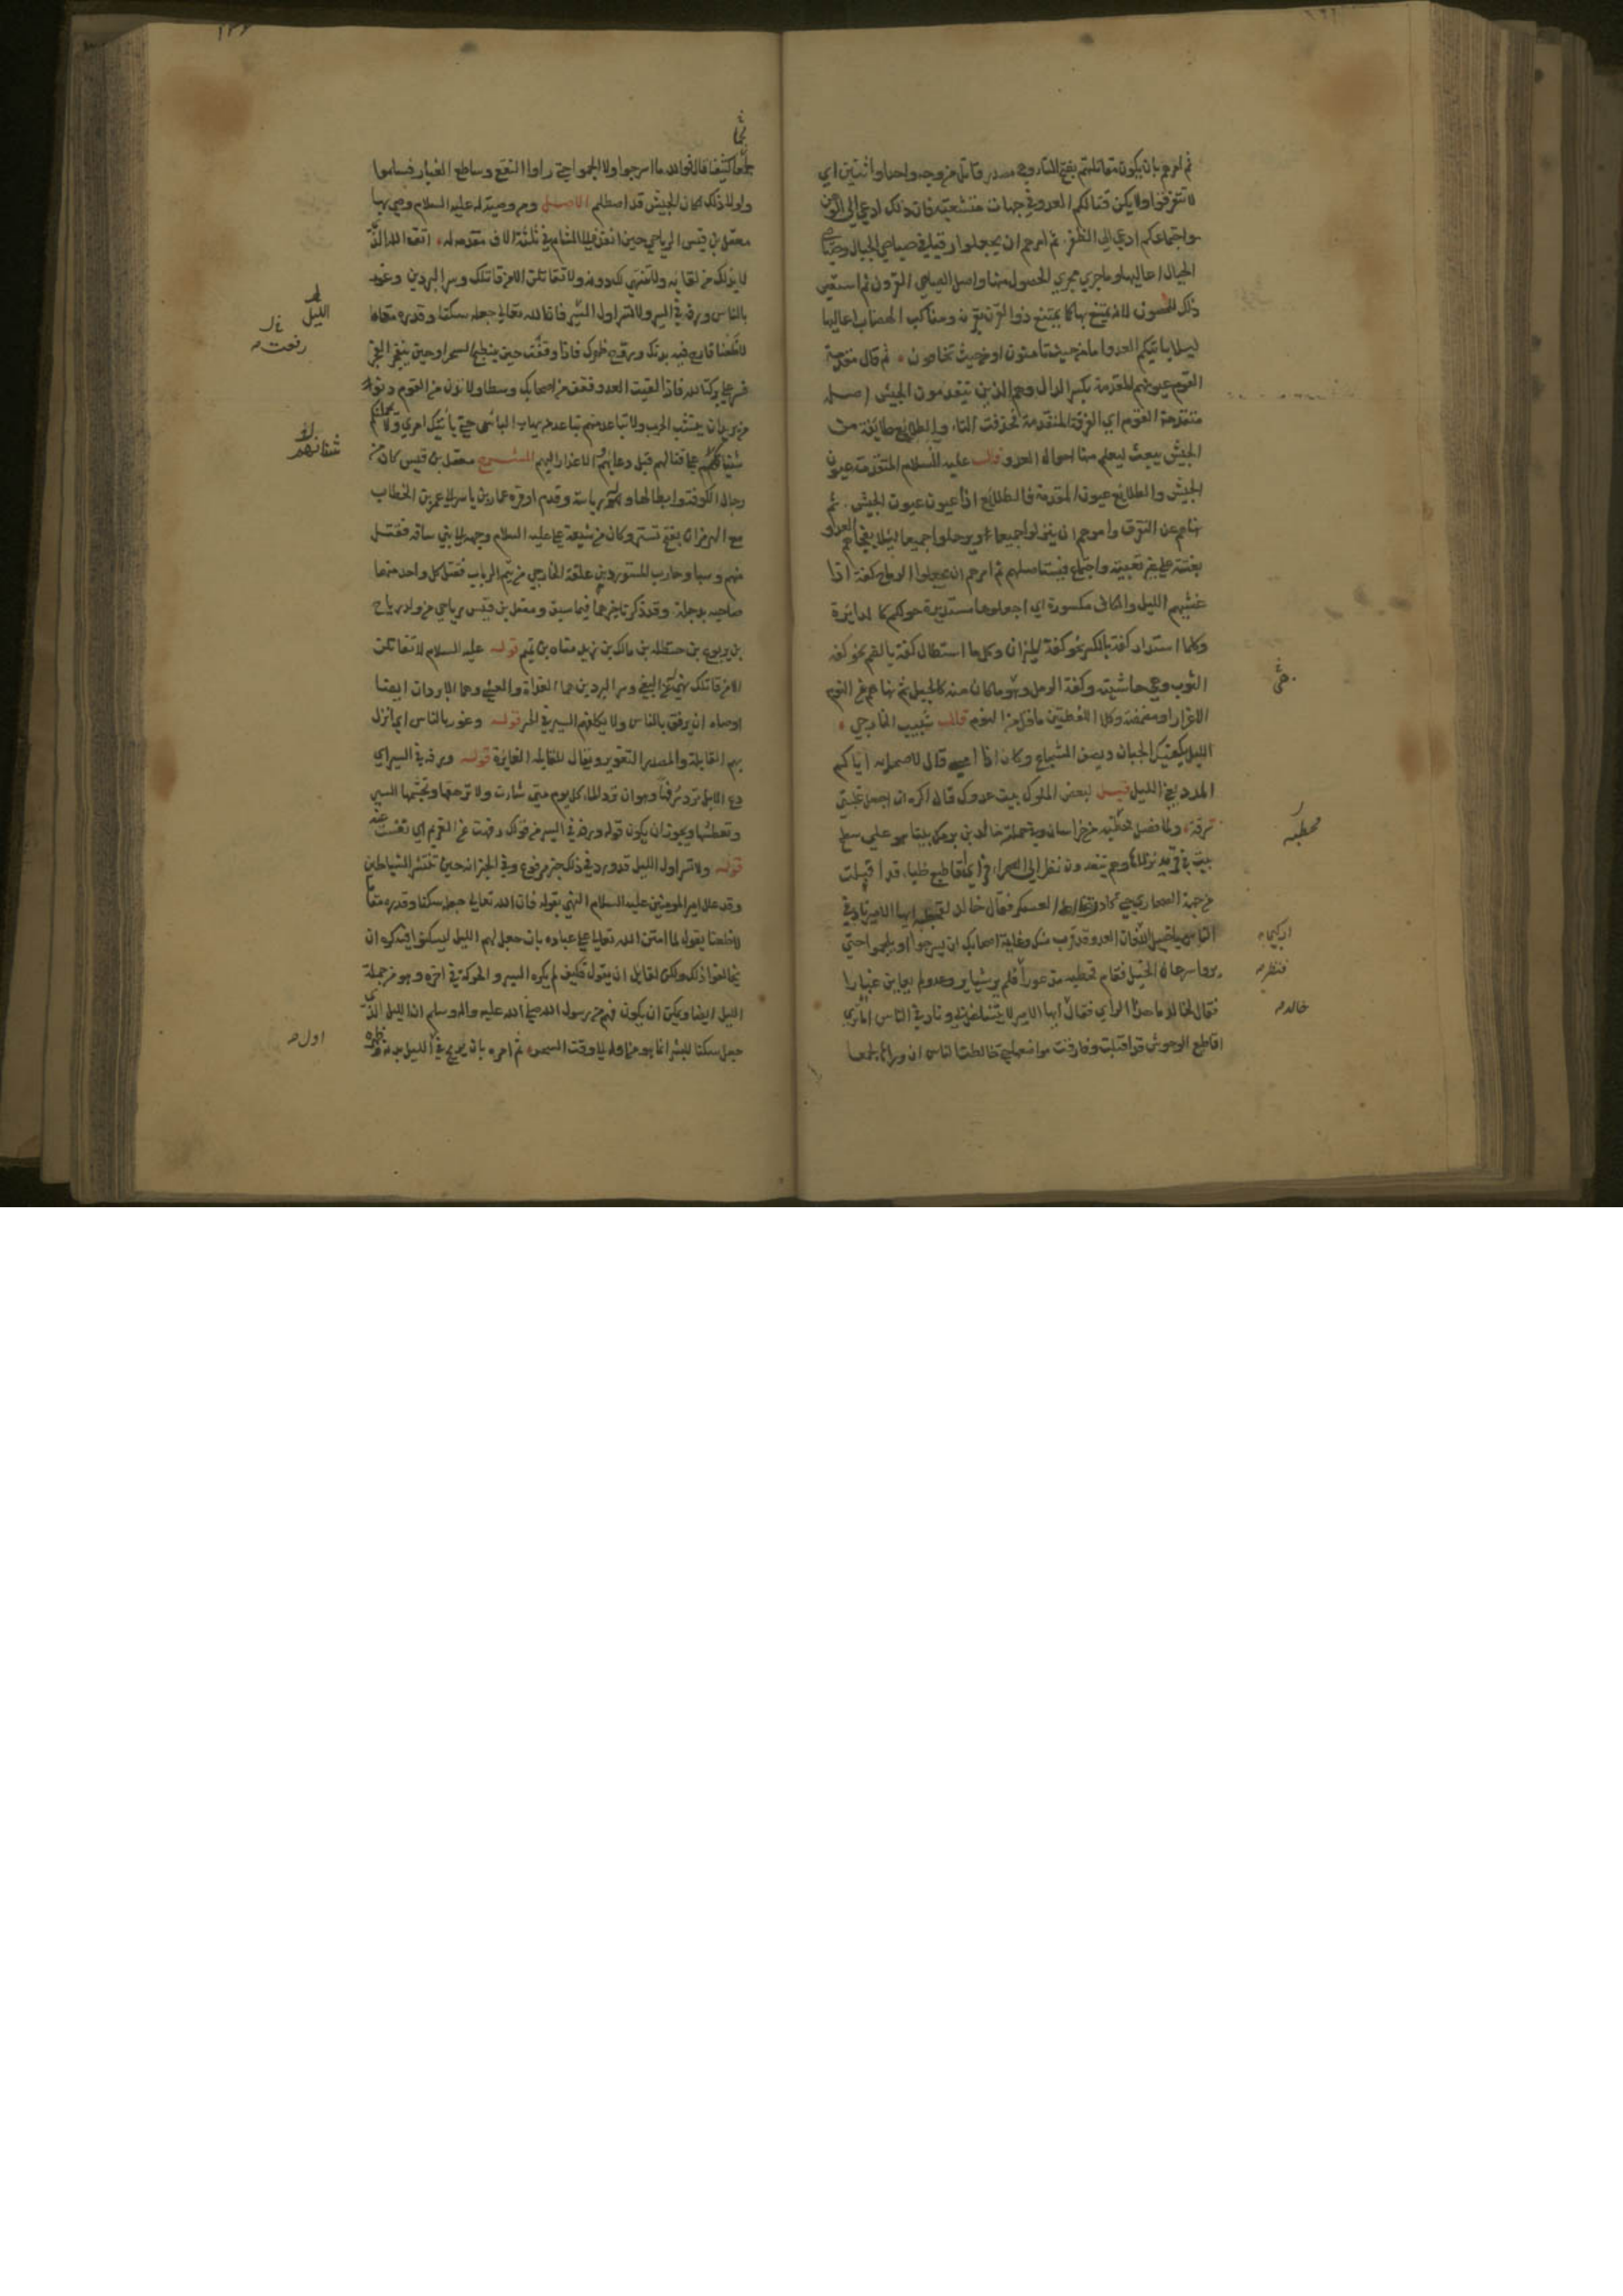 ثم امرهم بان يكون مقاتلتهم بفتح التاء وهي مصدر قاتل من وجه واحد او اثنين اي
لا تتفرقوا ولا يكن قتالكم العدو في جهات متشعبة فان ذلك ادعي الي الوهن
واجتماعكم ادعي الي الظفر ثم امرهم ان يجعلوا رقباء في صياصي الجبال وصياصي
الجبال اعاليها وما جري مجري الحصول منها واصل الصياصي القرون ثم استعير
ذلك للحصون لانه يمتنع بها كما يمتنع ذو القرن بقرنه ومناكب الهضاب اعاليها
ليلا ياتيكم العدو اما من حيث تامنون او من حيث تخافون ثم قال مقدمة
القوم عيونهم المقدمة بكسر الدال وهم الذين يتقدمون الجيش اصله
متقدمة القوم اي الفرقة المتقدمة فحذفت التاء والطلائع طايفة من
الجيش يبعث ليعلم منها احوال العدو قال عليه السلام المقدمة عيون
الجيش والطلايع عيون المقدمة فالطلايع اذا عيون عيون الجيش ثم
نهاهم عن التفرق وامرهم ان ينزلوا جميعا ويرحلوا جميعا ليلا يفجاهم العدو
بغتة علي غير تعبية واجتماع فيستاصلهم ثم امرهم ان يجعلوا الرماح كفة اذا
غشيهم الليل والكاف مكسورة اي اجعلوها مستديرة حولكم كالدايرة
وكلما استدار كفة بالكسر نحو كفة الميزان وكل ما استطال كفة بالضم نحو كفة
الثوب وهي حاشيته وكفة الرمل وهو ما كان منه كالحبل ثم نهاهم عن النوم
الا غرارا او مضمضة وكلا اللفظتين ما قل من النوم قال شبيب الخارجي
الليل يكفيك الجبان ونصف الشجاع وكان اذا امسي قال لاصحابه اتاكم
المدد يعني الليل قيل لبعض الملوك بيت عدوك قال اكره ان اجعل غلبتي
سرقة ولما فصل قحطبة من خراسان وفي جملته خالد بن برمك بينا هو علي سطح
بيت في قرية نزلاها وهم يتغدون نظر الي الصحراء فراي اقاطيع ظباء قد اقبلت
من جهة الصحاري حتي كادت تخالط العسكر فقال خالد لقحطبة ايها الامير ناد في
الناس يا خيل الله اركبي فان العدو قد قرب منك وغاية اصحابك ان يسرجوا او يلجموا حتي
يروا سرعان الخيل فقام قحطبة مذعورا فلم ير شيا يروعه ولم يعاين غبارا
فقال لخالد ما هذا الراي فقال ايها الامير لا تتشاغل بي وناد في الناس اما تري
اقاطيع الوحوش قد اقبلت وفارقت مواضعها حتي خالطت الناس ان وراءها جمعا
خفي
قحطبة
اركبي
فنظر
خالد
جمعا كثيفا قال فوالله ما اسرجوا ولا الجموا حتي راوا النقع وساطع الغبار فسلموا
ولولا ذلك لكان الجيش قد اصطلم الاصل ومن وصية له عليه السلام وصي بها
معقل بن قيس الرياحي حين انفذه الي الشام في ثلثة الاف مقدمة له اتق الله الذي
لا بد لك من لقايه ولا منتهي لك دونه ولا تقاتلن الا من قاتلك وسر البردين وغور
بالناس ورفه في السير ولا تسر اول الليل فان الله تعالي جعله سكنا وقدره مقاما
لا ظعنا فارح فيه بدنك وروح ظهرك فاذا وقفت حين ينبطح السحر او حين ينفجر الفجر
فسر علي بركة الله فاذا لقيت العدو فقف من اصحابك وسطا ولا تدن من القوم دنو
من يريد ان ينشب الحرب ولا تباعد منهم تباعد من يهاب الباس حتي ياتيك امري ولا يحملنكم
شنانهم علي قتالهم قبل دعايهم والاعذار اليهم الشرح معقل بن قيس كان من
رجال الكوفة وابطالها وله رياسة وقدم اوفده عمار بن ياسر الي عمر بن الخطاب
مع الهرمزان بفتح تستر وكان من شيعة علي عليه السلام وجهه الي بني ساقه فقتل
منهم وسبا وحارب المستورد بن علقة الخارجي من تيم الرباب فقتل كل واحد منهما
صاحبه بدجلة وقد ذكرنا خبرهما فيما سبق ومعقل بن قيس رياحي من ولد رياح
بن يربوع بن حنظلة بن مالك بن زيد مناة بن تميم قوله عليه السلام لا تقاتلن
الا من قاتلك نهي عن البغي وسر البردين هما الغداة والعشي وهما الابردان ايضا
اوصاه ان يرفق بالناس ولا يكلفهم السير في الحر قوله وغور بالناس اي انزل
بهم القايلة والمصدر التغوير ويقال للقايلة الغايرة قوله ورفه في السير اي
دع الابل ترد رفها وهو ان ترد الماء كل يوم متي شاءت ولا ترهقها وتجشمها السير
وتعطشها ويجوز ان يكون قوله ورفه في السير من قولك رفهت عن الغريم اي نفست عنه
قوله ولا تسر اول الليل قد ورد في ذلك خبر مرفوع وفي الخبر انه حين تنتشر الشياطين
وقد علل امير المومنين عليه السلام النهي بقوله فان الله تعالي جعله سكنا وقدره مقاما
لا ظعنا يقول لما امتن الله تعالي علي عباده بان جعل لهم الليل ليسكنوا فيه كره ان
يخالفوا ذلك ولكن لقايل ان يقول فكيف لم يكره السير والحركة في اخره وهو من جملة
الليل ايضا ويمكن ان يكون فهم من رسول الله صلي الله عليه واله وسلم ان الليل الذي
جعل سكنا للبشر انما هو من اوله الي وقت السحر ثم امره بان يريح في الليل بدنه وظهره
الليل
رفعت
شنانهم
اول